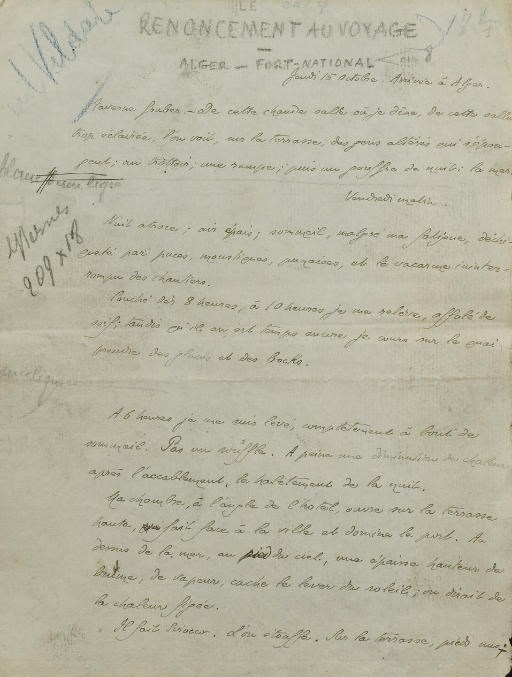 LE
RENONCEMENT AU VOYAGE
ALGER — FORT-NATIONAL
8
Jeudi 15 Octobre. Arrivée à Alger.
Taverne Gruber. — De cette chaude salle où je dîne, de cette salle
trop éclairée, l'on voit, sur la terrasse, des gens altérés qui s'épon-
gent; un trottoir; une rampe; puis un gouffre de nuit: la mer.
Vendredi matin.
Nuit atroce; air épais; sommeil, malgré ma fatigue, déchi-
queté par puces, moustiques, punaises, et le vacarme ininter-
rompu des chantiers.
Couché dès 8 heures, à 10 heures je me relève, affolé de
soif; tandis qu'il en est temps encore je cours sur le quai
prendre des glaces et des bocks.
A 6 heures je me suis levé, complètement à bout de
sommeil. Pas un souffle. A peine une diminution de chaleur
après l'accablement, le halètement de la nuit.
Ma chambre, à l'angle de l'hôtel, ouvre sur la terrasse
haute, fait face à la ville et domine le port. Au
dessus de la mer, au pied du ciel, une épaisse hauteur de
brume, de vapeur, cache le lever du soleil; on dirait de
la chaleur figée.
Il fait Sirocco. L'on étouffe. Sur la terrasse, pieds nus
209 x 18